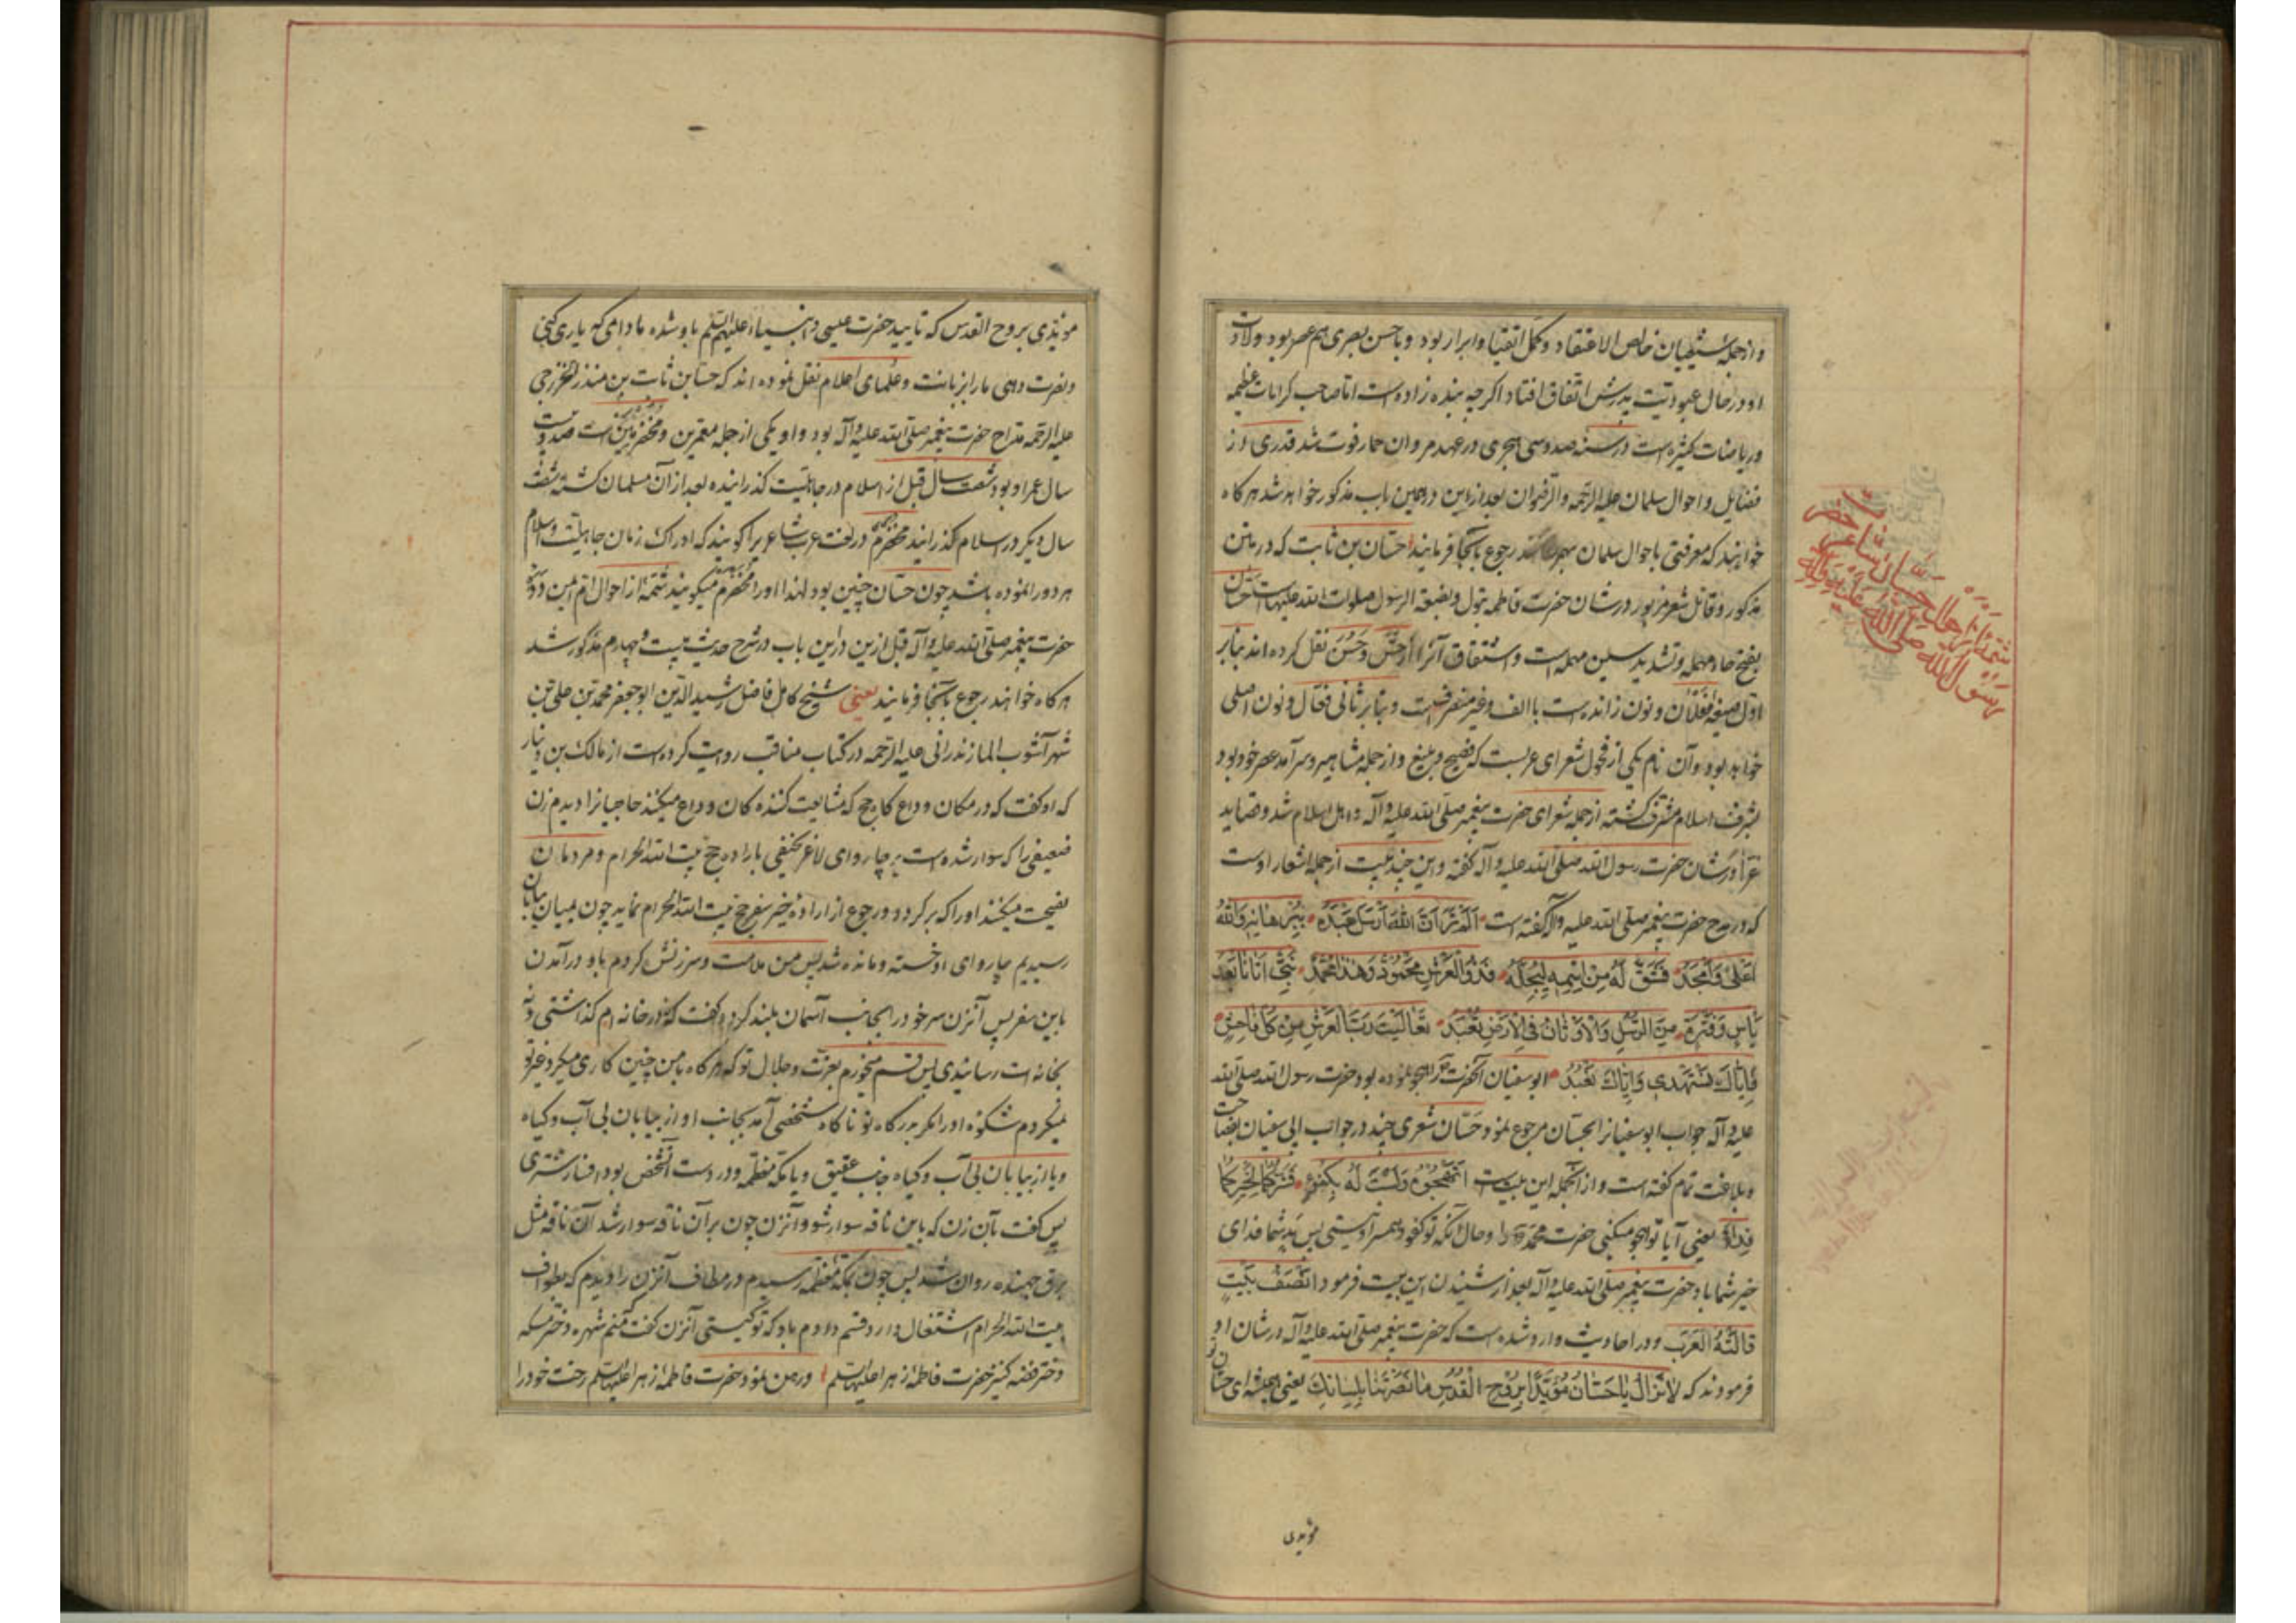 و از جمله شیعیان خالص الاعتقاد و کمّل اتقیا و ابرار بود و با حسن بصری هم عصر بود و ولادت
او در حال عبودتیت پدرش اتفاق افتاد اگرچه بنده زاده است اما صاحب کرامات عظیمه
و ریاضات کثیره است در سنه صد و سی هجری در عهد مروان حمار فوت شد قدری از
فضایل و احوال سلمان علیه الرحمه و الرضوان بعد ازین در همین باب مذکور خواهد شد هرکاه
خواهند که معرفتی باحوال سلمان بهم رجوع بآنجا فرمایند حسّان بن ثابت که در متن
مذکور و قائل شعر مزبور در شان حضرت فاطمه بتول و بضعة الرسول صلوات الله علیهاست حسّان
بفتح حاء مهمله و تشدید سین مهمله است و اشتقاق آنرا از حسّ و حسن نقل کرده اند بنابر
اول صیغه فعلان و نون زائده است با الف و غیر منصرفست و بنابر ثانی فعّال و نون اصلی
خواهد بود و آن نام یکی از فحول شعرای عربست که فصیح و بلیغ و از جمله مشاهیر و سرآمد عصر خود بود
بشرف اسلام مشرف کشته از جمله شعرای حضرت پیغمبر صلی الله علیه و آله و اهل اسلام شد و قصاید
غرّا در شان حضرت رسول الله صلی الله علیه و آله کفته و این چند بیت از جمله اشعار اوست
که در مدح حضرت پیغمبر صلی الله علیه و آله کفته است اَلَمْ تَرَ اَنَّ اللهَ اَرْسَلَ عَبْدَهُ بِبُرْهانِهِ وَاللهُ
اَعْلیٰ وَاَمْجَدُ فَشَقَّ لَهُ مِنْ اِسْمِهِ لِیُجِلَّهُ فَذُو الْعَرْشِ مَحْمُودٌ وَهٰذا مُحَمَّدٌ نَبِیٌّ اَتانا بَعْدَ
یَاْسٍ وَفَتْرَةٍ مِنَ الرُّسُلِ وَالْاَوْثانُ فِی الْاَرْضِ تُعْبَدُ تَعالَیْتَ رَبَّ الْعَرْشِ مِنْ کُلِّ فاحِشٍ
فَاِیّاکَ نَسْتَهْدِی وَاِیّاکَ نَعْبُدُ ابوسفیان آنحضرت را هجو نموده بود حضرت رسول الله صلی الله
علیه و آله جواب ابوسفیانرا بحسّان مرجوع نمود حسّان شعری چند در جواب ابی سفیان بفصاحت
و بلاغت تمام کفته است و از آنجمله این بیت است اَتَهْجُوهُ وَلَسْتَ لَهُ بِکُفْوٍ فَشَرُّکُما لِخَیْرِکُما
فِداءُ یعنی آیا تو هجو میکنی حضرت محمّد را و حال آنکه تو کفو و همسر او نیستی پس بد شما فدای
خیر شما باد حضرت پیغمبر صلی الله علیه و آله بعد از شنیدن این بیت فرمود اَنْصَفُ بَیْتٍ
قالَتْهُ الْعَرَبُ و در احادیث وارد شده است که حضرت پیغمبر صلی الله علیه و آله در شان او
فرمودند که لاتَزالُ یا حَسّانُ مُؤَیَّداً بِرُوحِ الْقُدُسِ ما نَصَرْتَنا بِلِسانِکَ یعنی همیشه ای حسّان تو
مؤیدی
شمّهٔ از احوال حسّان بن ثابت شاعر حضرت
رسول الله صلی الله علیه و آله
مؤیدی بروح القدس که تایید حضرت عیسی و انبیاء علیهم السلم باو شده مادامی که یاری کنی
و نصرت دهی ما را بزبانت و علمای اعلام نقل نموده اند که حسّان بن ثابت بن منذر الخزرجی
علیه الرحمه مدّاح حضرت پیغمبر صلی الله علیه و آله بود و او یکی از جمله معمّرین و مخضرمین است صد و بیست
سال عمر او بود شصت سال قبل از اسلام در جاهلیت کذرانیده بعد از آن مسلمان کشته شصت
سال دیکر در اسلام کذرانید مخضرم در لغت عرب شاعریرا کویند که ادراک زمان جاهلیت و اسلام
هر دو را نموده باشد چون حسّان چنین بود لهذا او را مخضرم میکویند شمّهٔ از احوال ام ایمن
حضرت پیغمبر صلی الله علیه و آله قبل ازین در این باب در شرح حدیث بیست و چهارم مذکور شد
هرکاه خواهند رجوع بآنجا فرمایند یعنی شیخ کامل فاضل رشید الدین ابوجعفر محمّد بن علی بن
شهرآشوب المازندرانی علیه الرحمه در کتاب مناقب روایت کرده است از مالک بن دینار
که او کفت که در مکان وداع کاه حج که مشایعت کننده کان وداع میکنند حاجیانرا دیدم زن
ضعیفی را که سوار شده است بر چاروای لاغر نحیفی باراده حج بیت الله الحرام و مردمان
نصیحت میکنند او را که برکردد و رجوع از اراده خیر سفر حج بیت الله الحرام نماید چون بمیان بیابان
رسیدیم چاروای او خسته و مانده شد پس من ملامت و سرزنش کردم باو در آمدن
باین سفر پس آنزن سر خود را بجانب آسمان بلند کرد و کفت که نه در خانه ام کذاشتی و نه
بخانه ات رسانیدی پس قسم میخورم بعزت و جلال تو که هرکاه بامن چنین کاری میکرد غیر تو
نمیکردم شکوه او را مکر بدرکاه تو ناکاه شخصی آمد بجانب او از بیابان بی آب و کیاه
و یا از بیابان بی آب و کیاه جانب عقیق و یا مکه معظّمه و در دست آنشخص بود افسار شتری
پس کفت بآن زن که باین ناقه سوار شو و آنزن چون بر آن ناقه سوار شد آن ناقه مثل
برق جهنده روان شد پس چون بمکه معظمه رسیدم در مطاف آنزن را دیدم که بطواف
بیت الله الحرام اشتغال دارد قسم دادم باو که تو کیستی آنزن کفت که منم شهره دختر مسکه
دختر فضه کنیز حضرت فاطمه زهرا علیها السلم و رهن نمود حضرت فاطمه زهرا علیها السلم رخت خود را